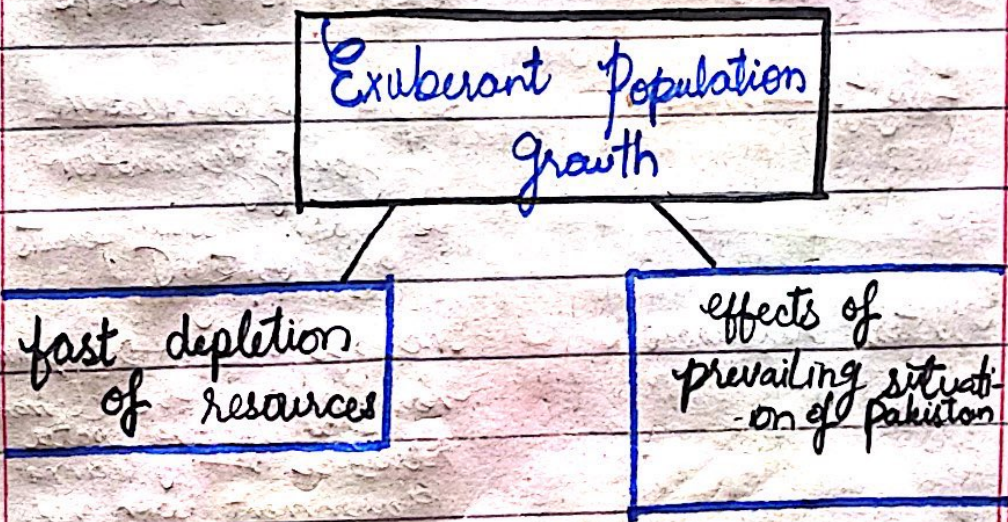 Exuberant Population
Growth
fast depletion
of resources
effects of
prevailing situati-
-on of Pakistan